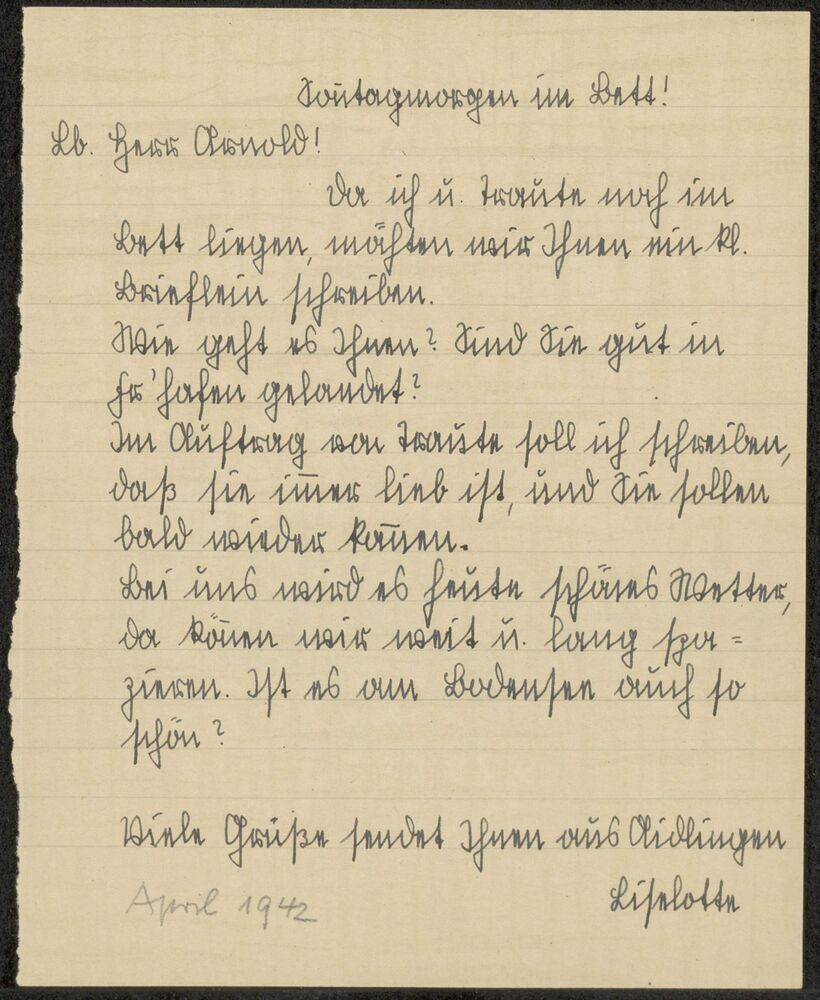 Soñtagmorgen im Bett!
Lb. Herr Arnold!
Da ich u. Traute noch im
Bett liegen, möchten wir Ihnen ein kl.
Brieflein schreiben.
Wie geht es Ihnen? Sind Sie gut in
Fr'hafen gelandet?
Im Auftrag von Traute soll ich schreiben,
daß sie im̅er lieb ist, und Sie sollen
bald wieder kom̅en.
Bei uns wird es heute schönes Wetter,
da kön̅en wir weit u. lang spa=
zieren. Ist es am Bodensee auch so
schön?
Viele Grüße sendet Ihnen aus Aidlingen
Liselotte
April 1942